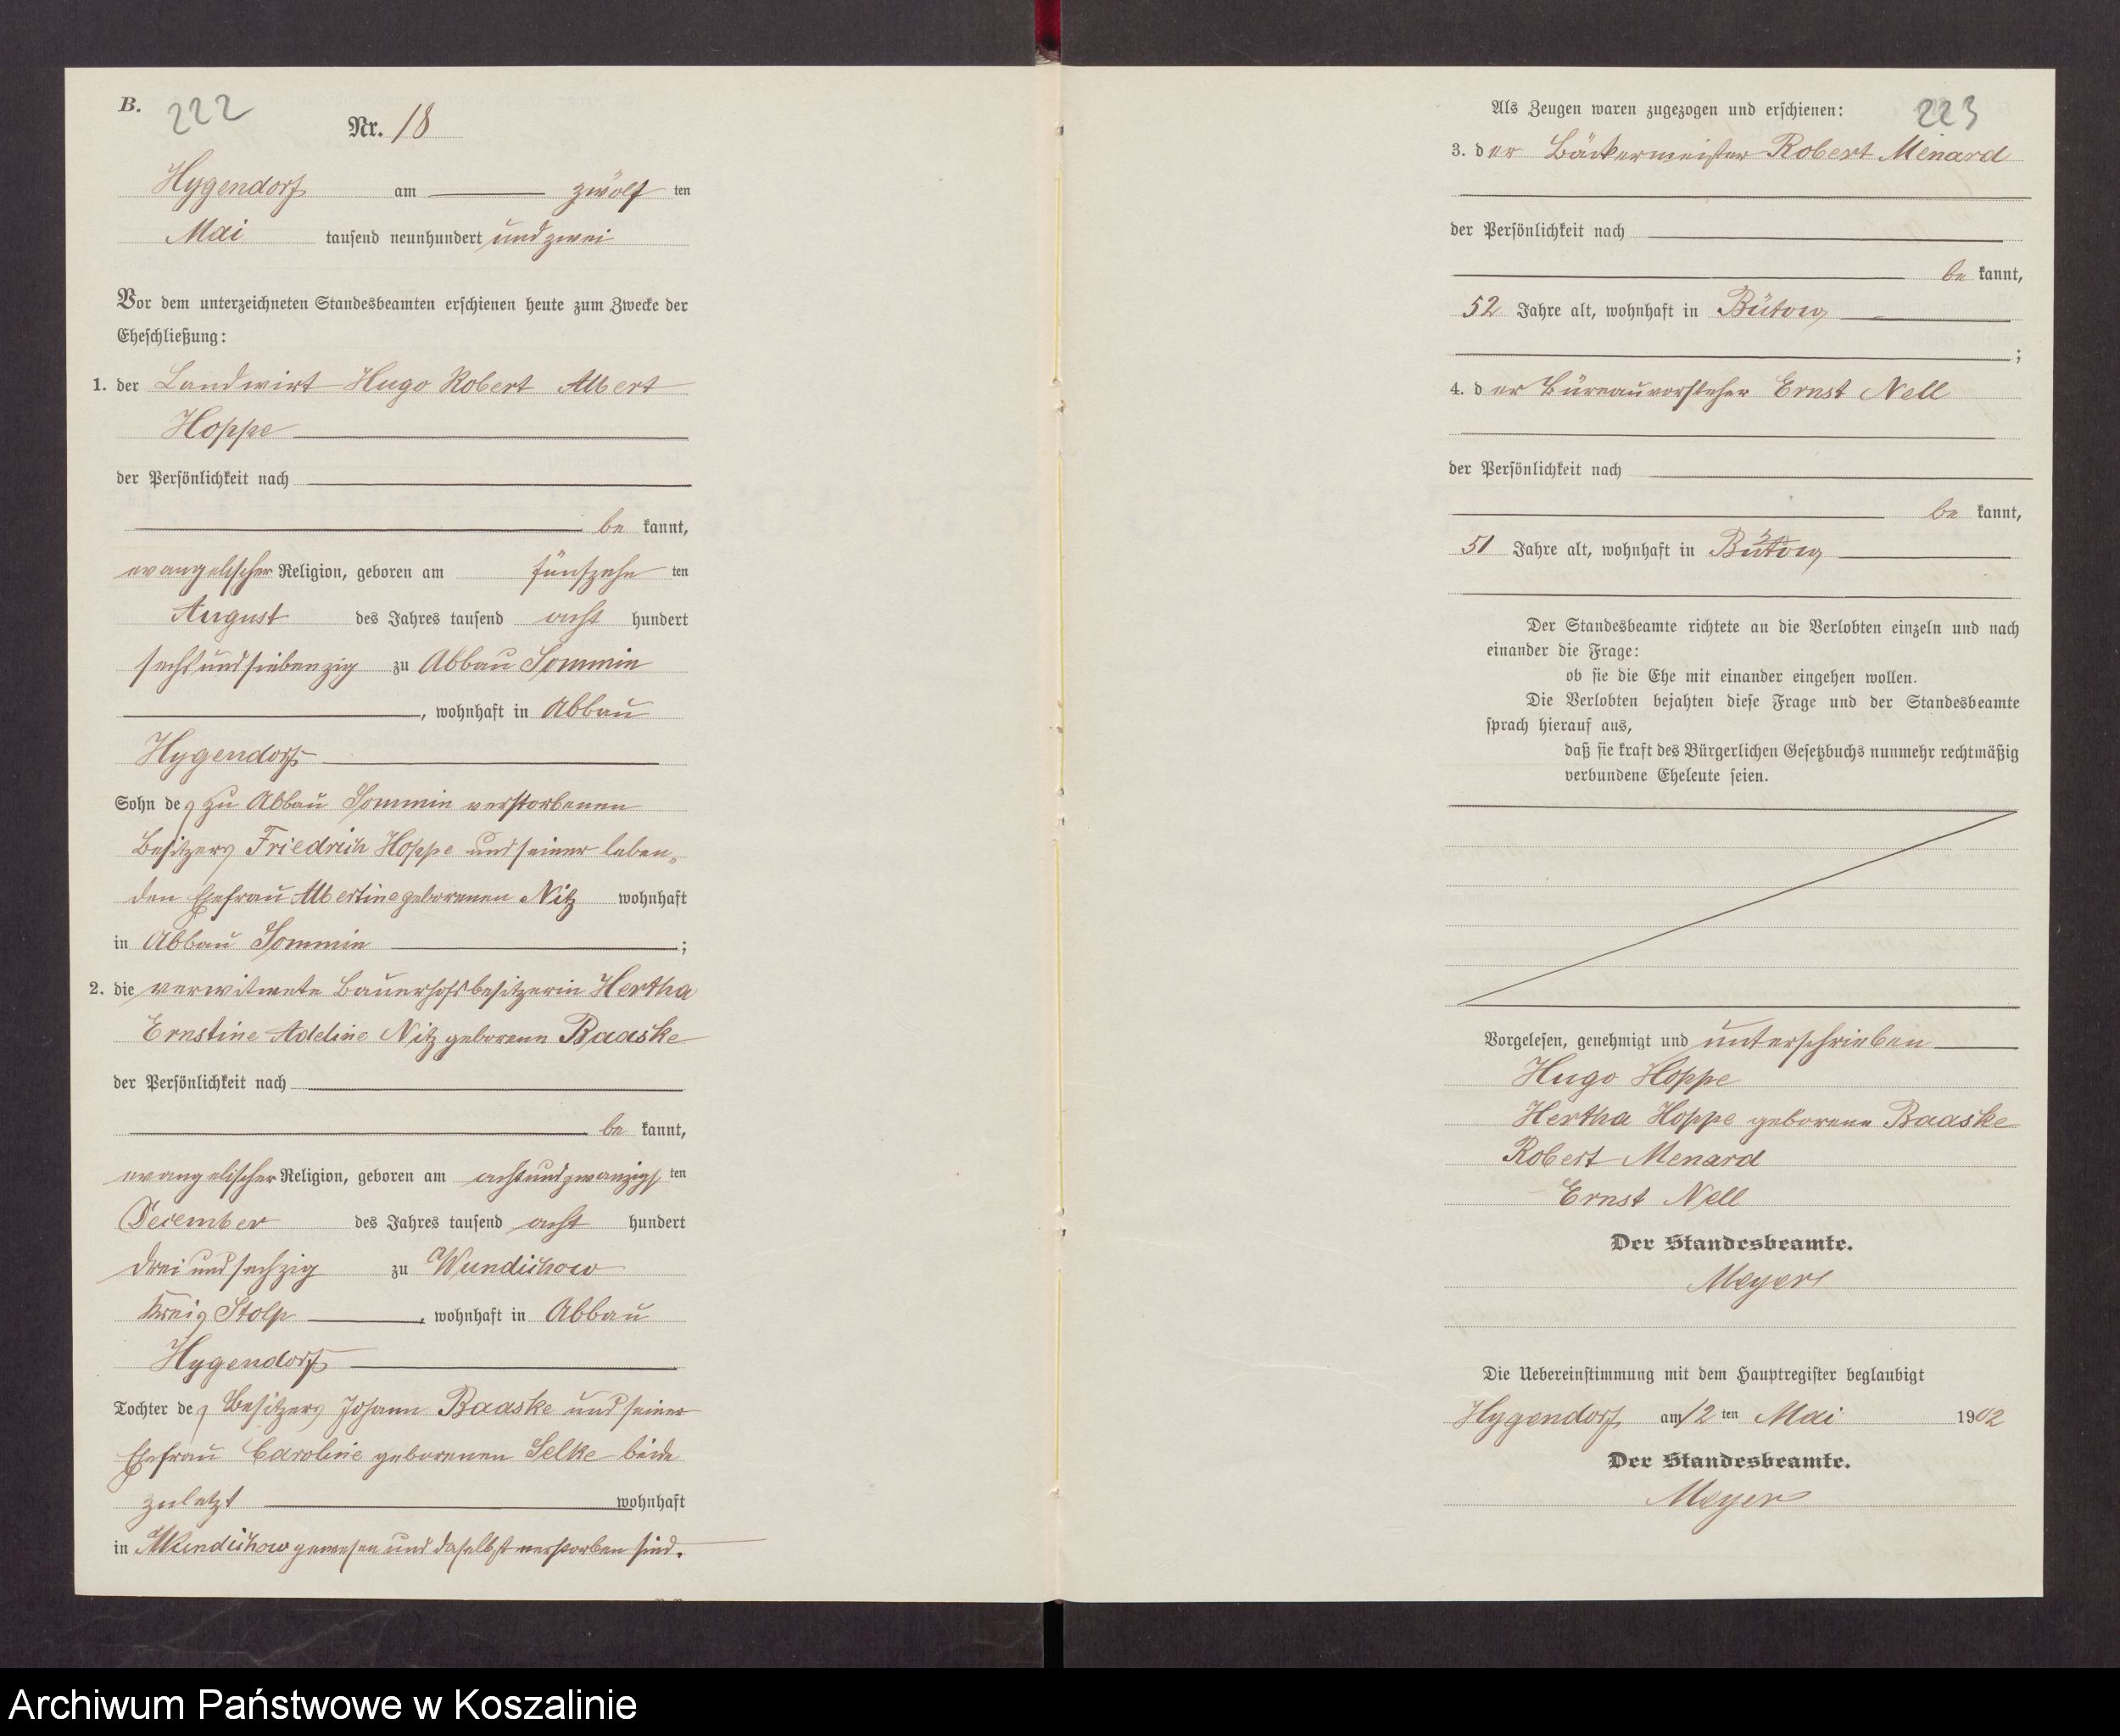 B.
222
Nr. 18
Hygendorf am zwölf ten
Mai tausend neunhundert und zwei
Vor dem unterzeichneten Standesbeamten erschienen heute zum Zwecke der
Eheschließung:
1. der Landwirt Hugo Robert Albert
Hoppe
der Persönlichkeit nach
be kannt,
evangelischer Religion, geboren am fünfzehn ten
August des Jahres tausend acht hundert
sechsundsiebenzig zu Abbau Sommin
, wohnhaft in Abbau
Hygendorf
Sohn des zu Abbau Sommin verstorbenen
Besitzers Friedrich Hoppe und seiner leben„
den Ehefrau Albertine geborenen Nitz wohnhaft
in Abbau Sommin ;
2. die verwitwete Bauerhofsbesitzerin Hertha
Ernstine Adeline Nitz geborene Baaske
der Persönlichkeit nach
be kannt,
evangelischer Religion, geboren am achtundzwanzigs ten
December des Jahres tausend acht hundert
drei und sechzig zu Wundichow
Kreis Stolp , wohnhaft in Abbau
Hygendorf
Tochter des Besitzers Johann Baaske und seiner
Ehefrau Caroline geborenen Selke beide
zuletzt wohnhaft
in Wundichow gewesen und daselbst verstorben sind.
Als Zeugen waren zugezogen und erschienen:
223
3. der Bäckermeister Robert Menard
der Persönlichkeit nach
be kannt,
52 Jahre alt, wohnhaft in Bütow
;
4. der Büreauvorsteher Ernst Nell
der Persönlichkeit nach
be kannt,
51 Jahre alt, wohnhaft in Bütow
Der Standesbeamte richtete an die Verlobten einzeln und nach
einander die Frage:
ob sie die Ehe mit einander eingehen wollen.
Die Verlobten bejahten diese Frage und der Standesbeamte
sprach hierauf aus,
daß sie kraft des Bürgerlichen Gesetzbuchs nunmehr rechtmäßig
verbundene Eheleute seien.
Vorgelesen, genehmigt und unterschrieben
Hugo Hoppe
Hertha Hoppe geborene Baaske
Robert Menard
Ernst Nell
Der Standesbeamte.
Meyer
Die Uebereinstimmung mit dem Hauptregister beglaubigt
Hygendorf am 12 ten Mai 1902
Der Standesbeamte.
Meyer
Archiwum Państwowe w Koszalinie